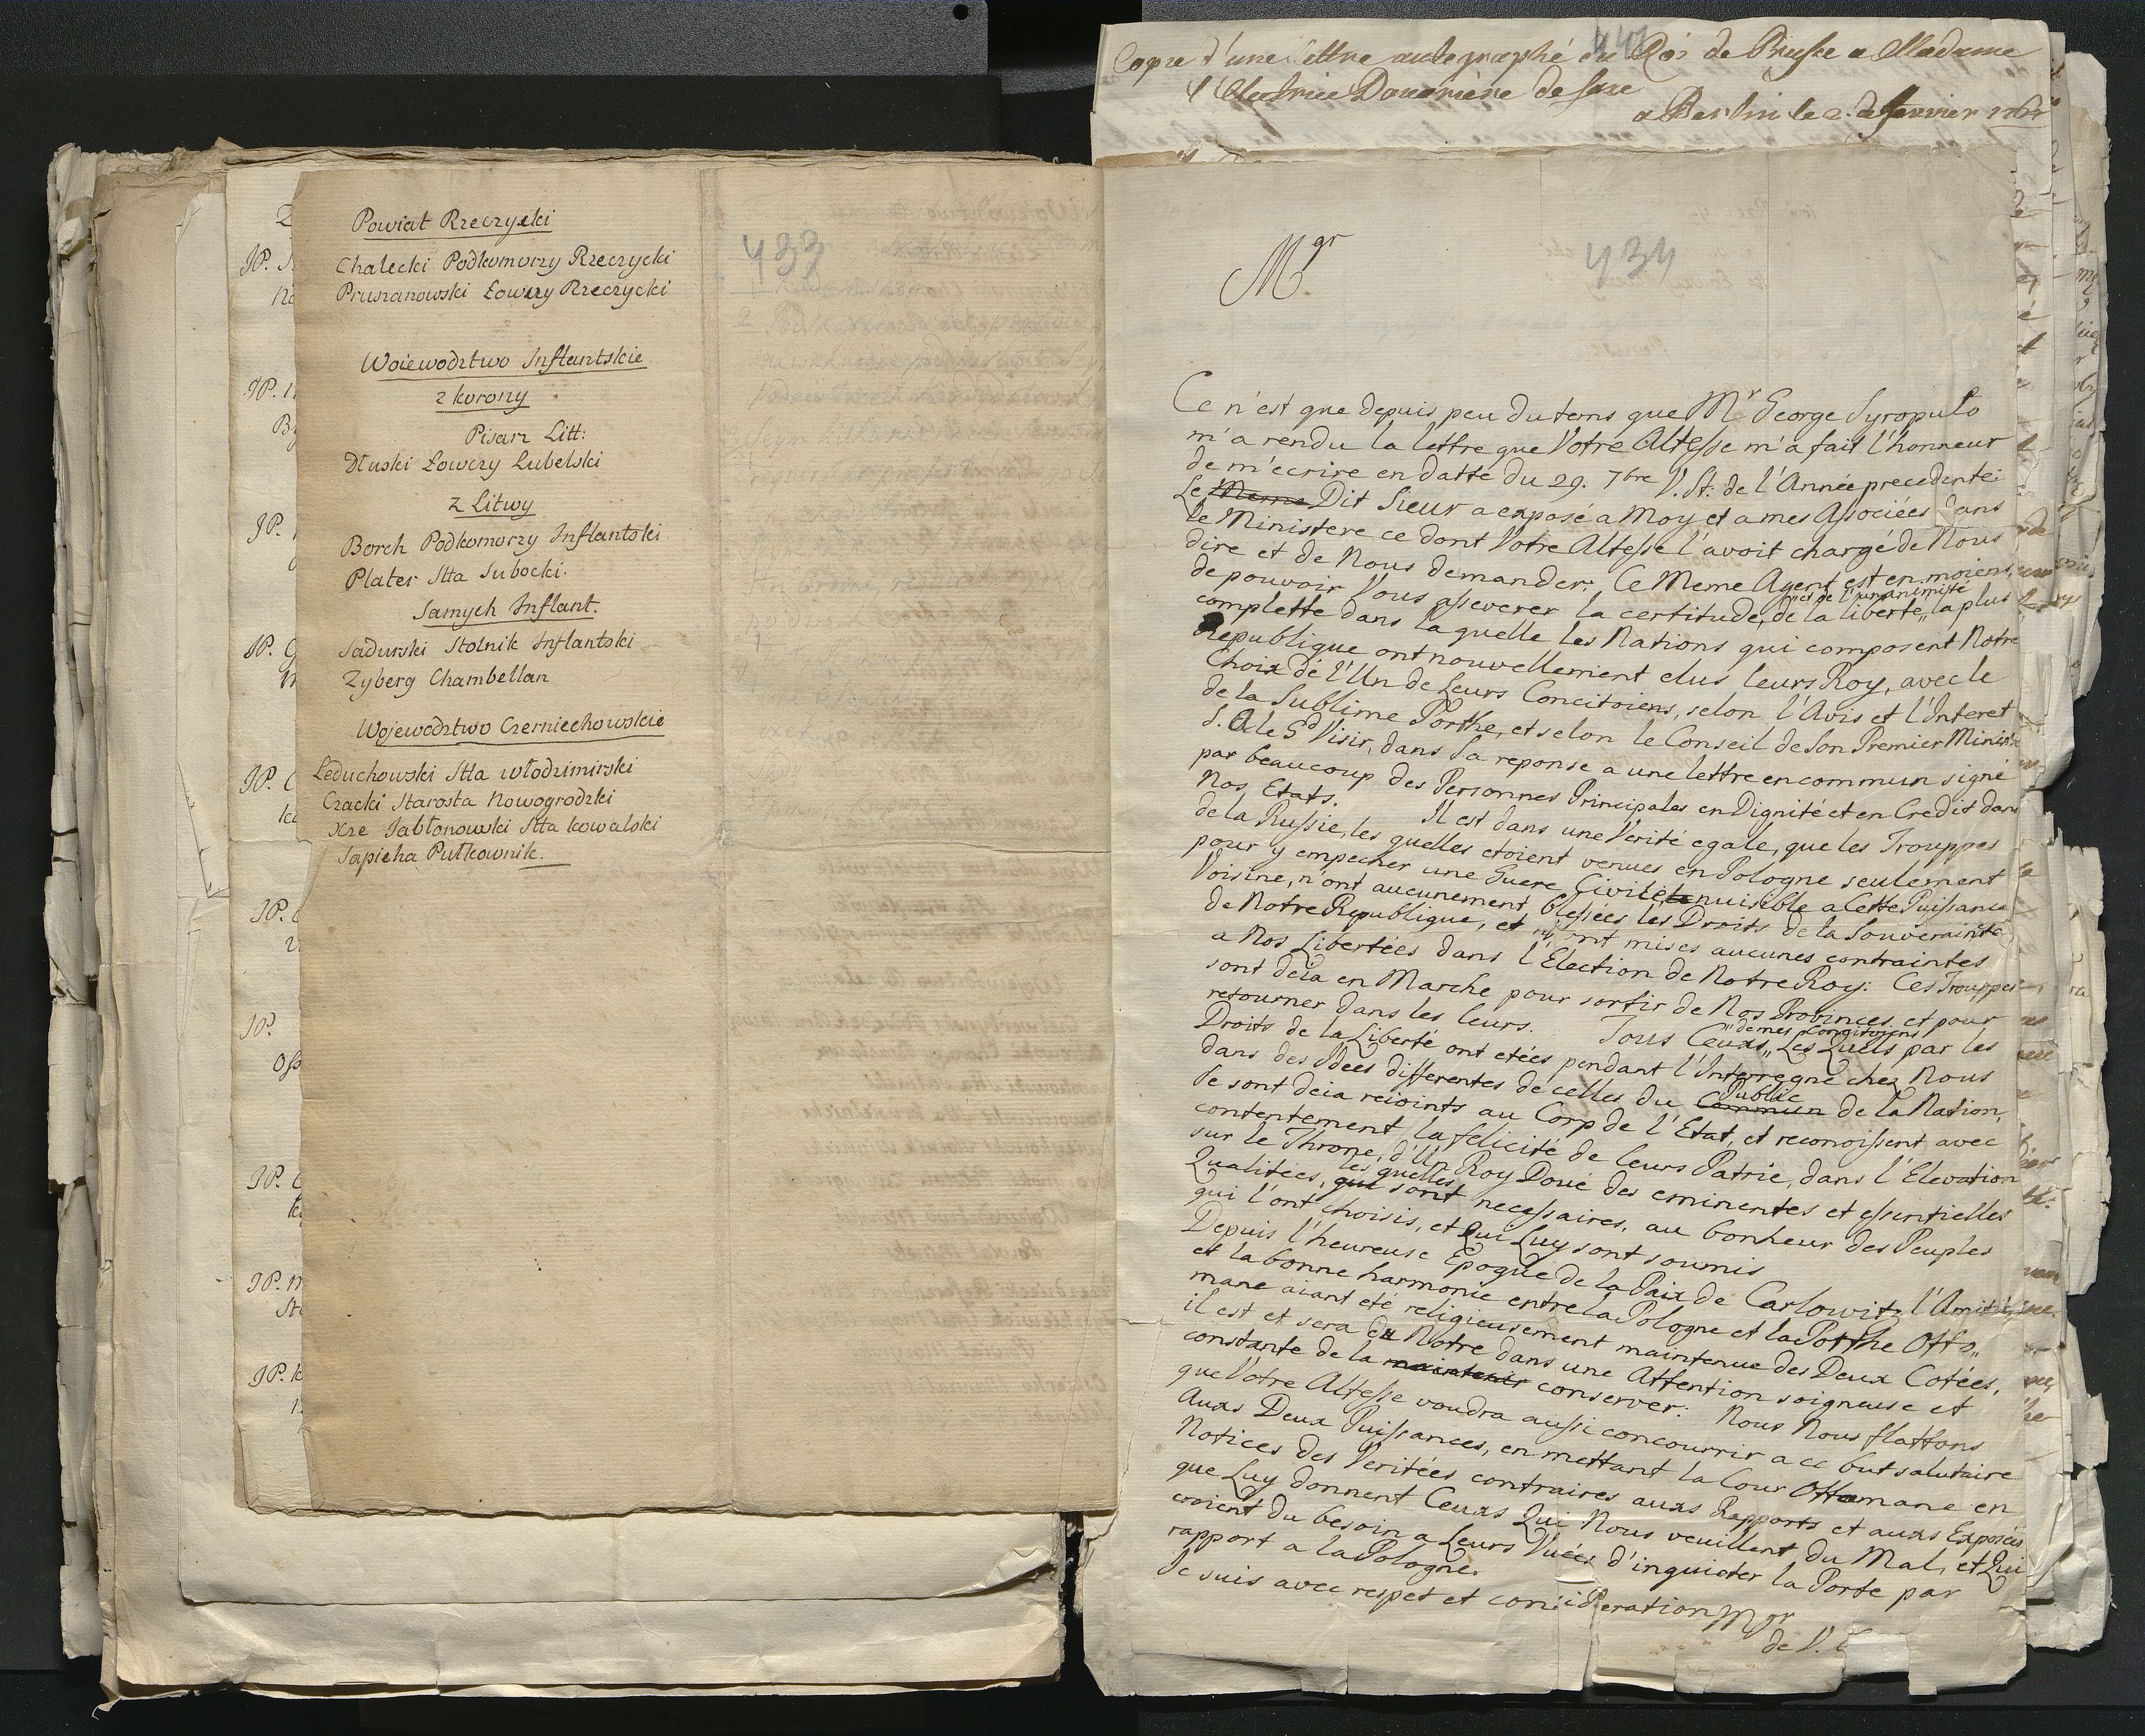 Powiat Rzeczycki
Chalecki Podkomorzy Rzeczycki
Pruszanowski Łowczy Rzeczycki
Woiewodztwo Inflantskie
z korony
Pisarz Litt:
Dłuski Łowczy Lubelski
z Litwy
Borch Podkomorzy Inflantski
Plater Stta Subocki.
Samych Inflant.
Sadurski Stolnik Inflantski
Zyberg Chambellan
Wojewodztwo Czerniechowskie
Leduchowski Stta włodzimirski
Czacki Starosta Nowogrodzki
Xże Jabłonowski Stta kowalski
Sapieha Pułkownik.
433
Copie d'une lettre autographé du Roi de Prusse a Madame
l'Electrice Douairiere de Saxe
a Berlin le 2. de Janvier
434
Mgr
Ce n'est que depuis peu du tems que Mr George Syropulo
m'a rendu la lettre que Votre Altesse m'a fait l'honneur
de m'ecrire en datte du 29. 7bre V. St: de l'Année precedente:
Le Meme Dit Sieur a exposé a Moy et a mes Associées dans
le Ministere ce dont Votre Altesse l'avoit chargé de Nous
dire et de Nous demander. Ce Meme Agent est en moiens
de pouvoir Vous asseverer la certitude, de la liberté,, la plus
et de l'unanimité
complette dans laquelle les Nations qui composent Notre
Republique ont nouvellement elus leurs Roy, avec le
Choix de l'Un de Leurs Concitoiens, selon l'Avis et l'Interet
de la Sublime Porthe, et selon le Conseil de Son Premier Ministre
S. A le Gd Visir, dans Sa reponse a une lettre en commun signé
par beaucoup des Personnes Principales en Dignité et en Credit dans
Nos Etats. Il est dans une Verité egale, que les Trouppes
de la Russie, les quelles etoient venues en Pologne seulement
pour y empecher une Guere Civile et nuisible a Cette Puissance
Voisine, n'ont aucunement blessées les Droits de la Souverainité
de Notre Republique, et n'ont mises aucunes contraintes
a Nos Libertées dans l'Election de Notre Roy: Ces Trouppes
sont deia en Marche pour sortir de Nos Provinces et pour
retourner dans les leurs. Tous Ceuxs,, Les Quels par les
"de mes Concitoiens
Droits de la Liberté ont etées pendant l'Interregne chez Nous
dans des Idées differentes de celles du Commun de la Nation,
Public
Se sont deia reioints au Corp de l'Etat, et reconoissent avec
contentement la felicité de leurs Patrie, dans l'Elevation
sur le Throne, d'Un Roy Doué des eminentes et essentielles
Qualitées, que sont necessaires, au bonheur des Peuples
les quelles
qui l'ont choisis, et Qui Luy sont soumis
Depuis l'heureuse Epoque de la Paix de Carlowitz l'Amitié
et la bonne harmonie entre la Pologne et la Porthe Otto,,
mane aiant eté religieusement maintenue des Deux Cotées,
il est et sera du Notre dans une Attention soigneuse et
constante de la maintenir conserver: Nous Nous flattons
que Votre Altesse voudra aussi concourrir a ce but salutaire
Auxs Deux Puissances, en mettant la Cour Ottomane en
Notices des Veritées contraires auxs Rapports et auxs Exposées
que Luy donnent Ceuxs Qui Nous veuillent du Mal, et Qui
croient du besoin a Leurs Vuées d'inquieter la Porte par
rapport a la Pologne.
Je suis avec respet et consideration Mgr
de V.